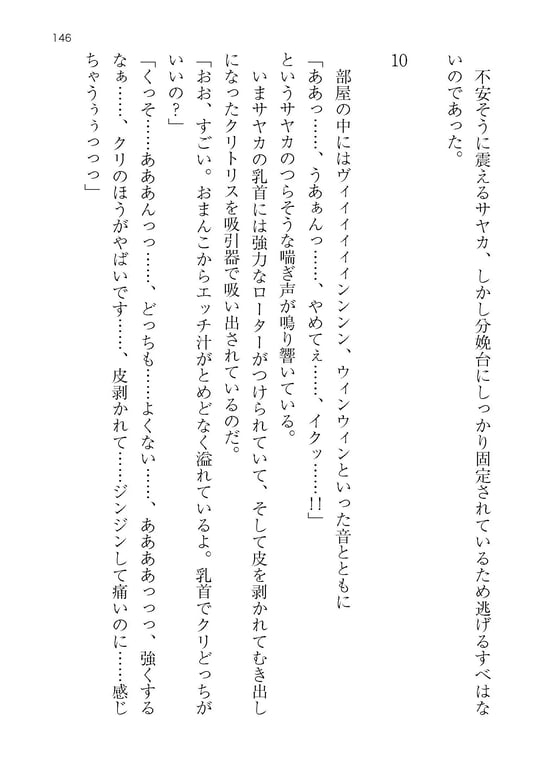 146
不安そうに震えるサヤカ、しかし分娩台にしっかり固定されているため逃げるすべはな
いのであった。
10
部屋の中にはヴィイイイイイインンンン、ウィンウィンといった音とともに
「ああっ……、うあぁんっ……、やめてぇ……、イクッ……!!」
というサヤカのつらそうな喘ぎ声が鳴り響いている。
いまサヤカの乳首には強力なローターがつけられていて、そして皮を剥かれてむき出し
になったクリトリスを吸引器で吸い出されているのだ。
「おお、すごい。おまんこからエッチ汁がとめどなく溢れているよ。乳首でクリどっちが
いいの?」
「くっそ……あああんっっ……、どっちも……よくない……、ああああっっっ、強くする
なぁ……、クリのほうがやばいです……、皮剥かれて……ジンジンして痛いのに……感じ
ちゃうぅぅっっっ」